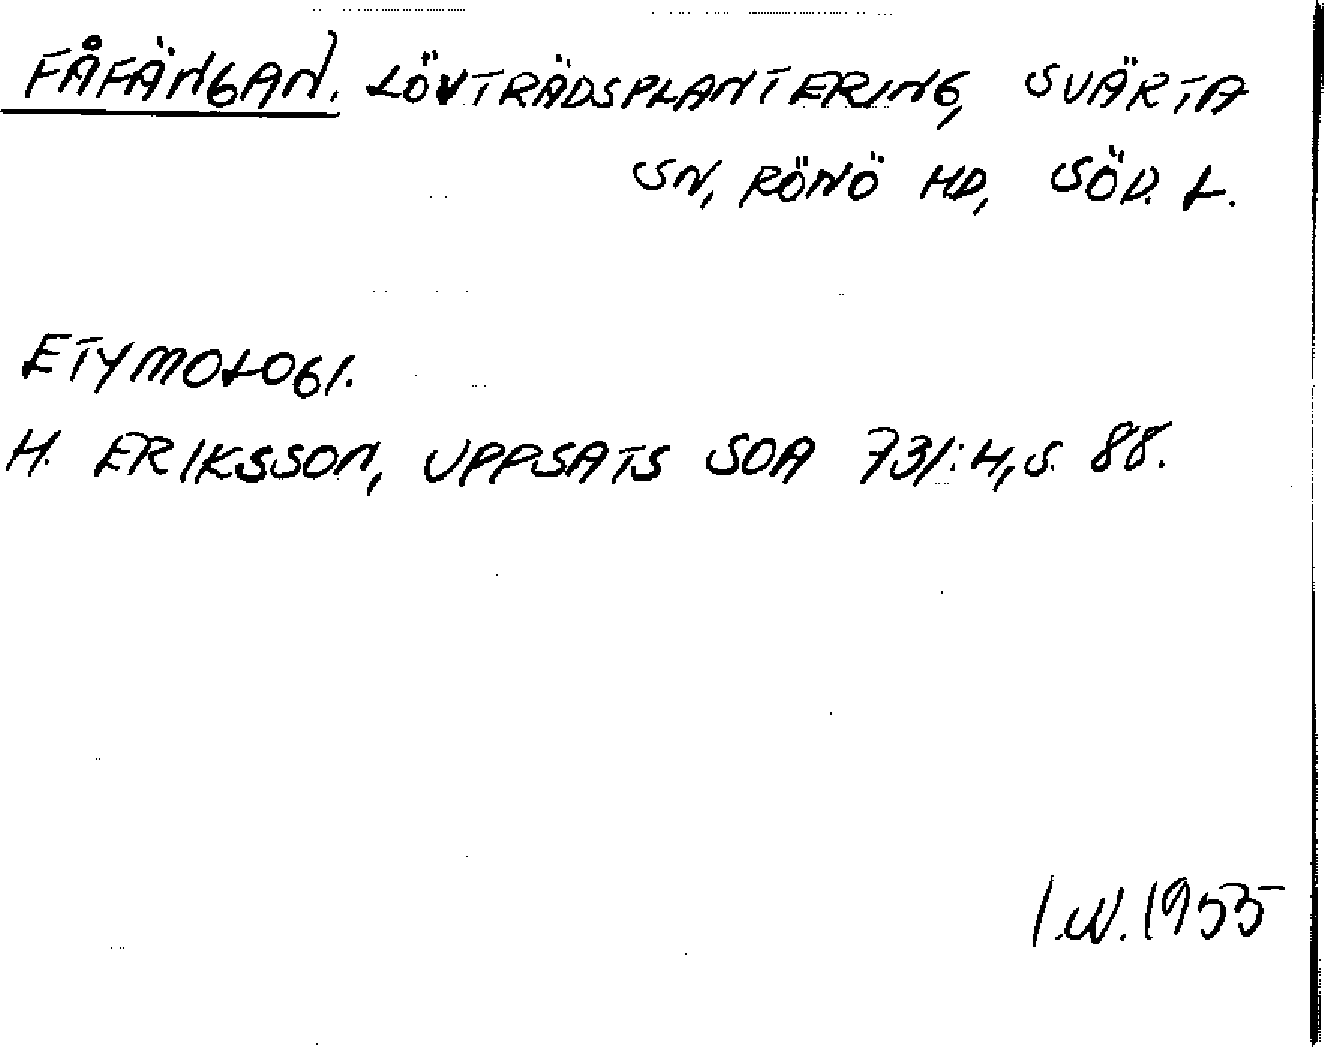 FÅFÄNGAN. LÖVTRÄDSPLANTERING, SVÄRTA
SN, RÖNÖ HD, SÖD. L.
ETYMOLOGI.
H. ERIKSSON, UPPSATS SOA 731:4, S. 88.
I.W. 1955